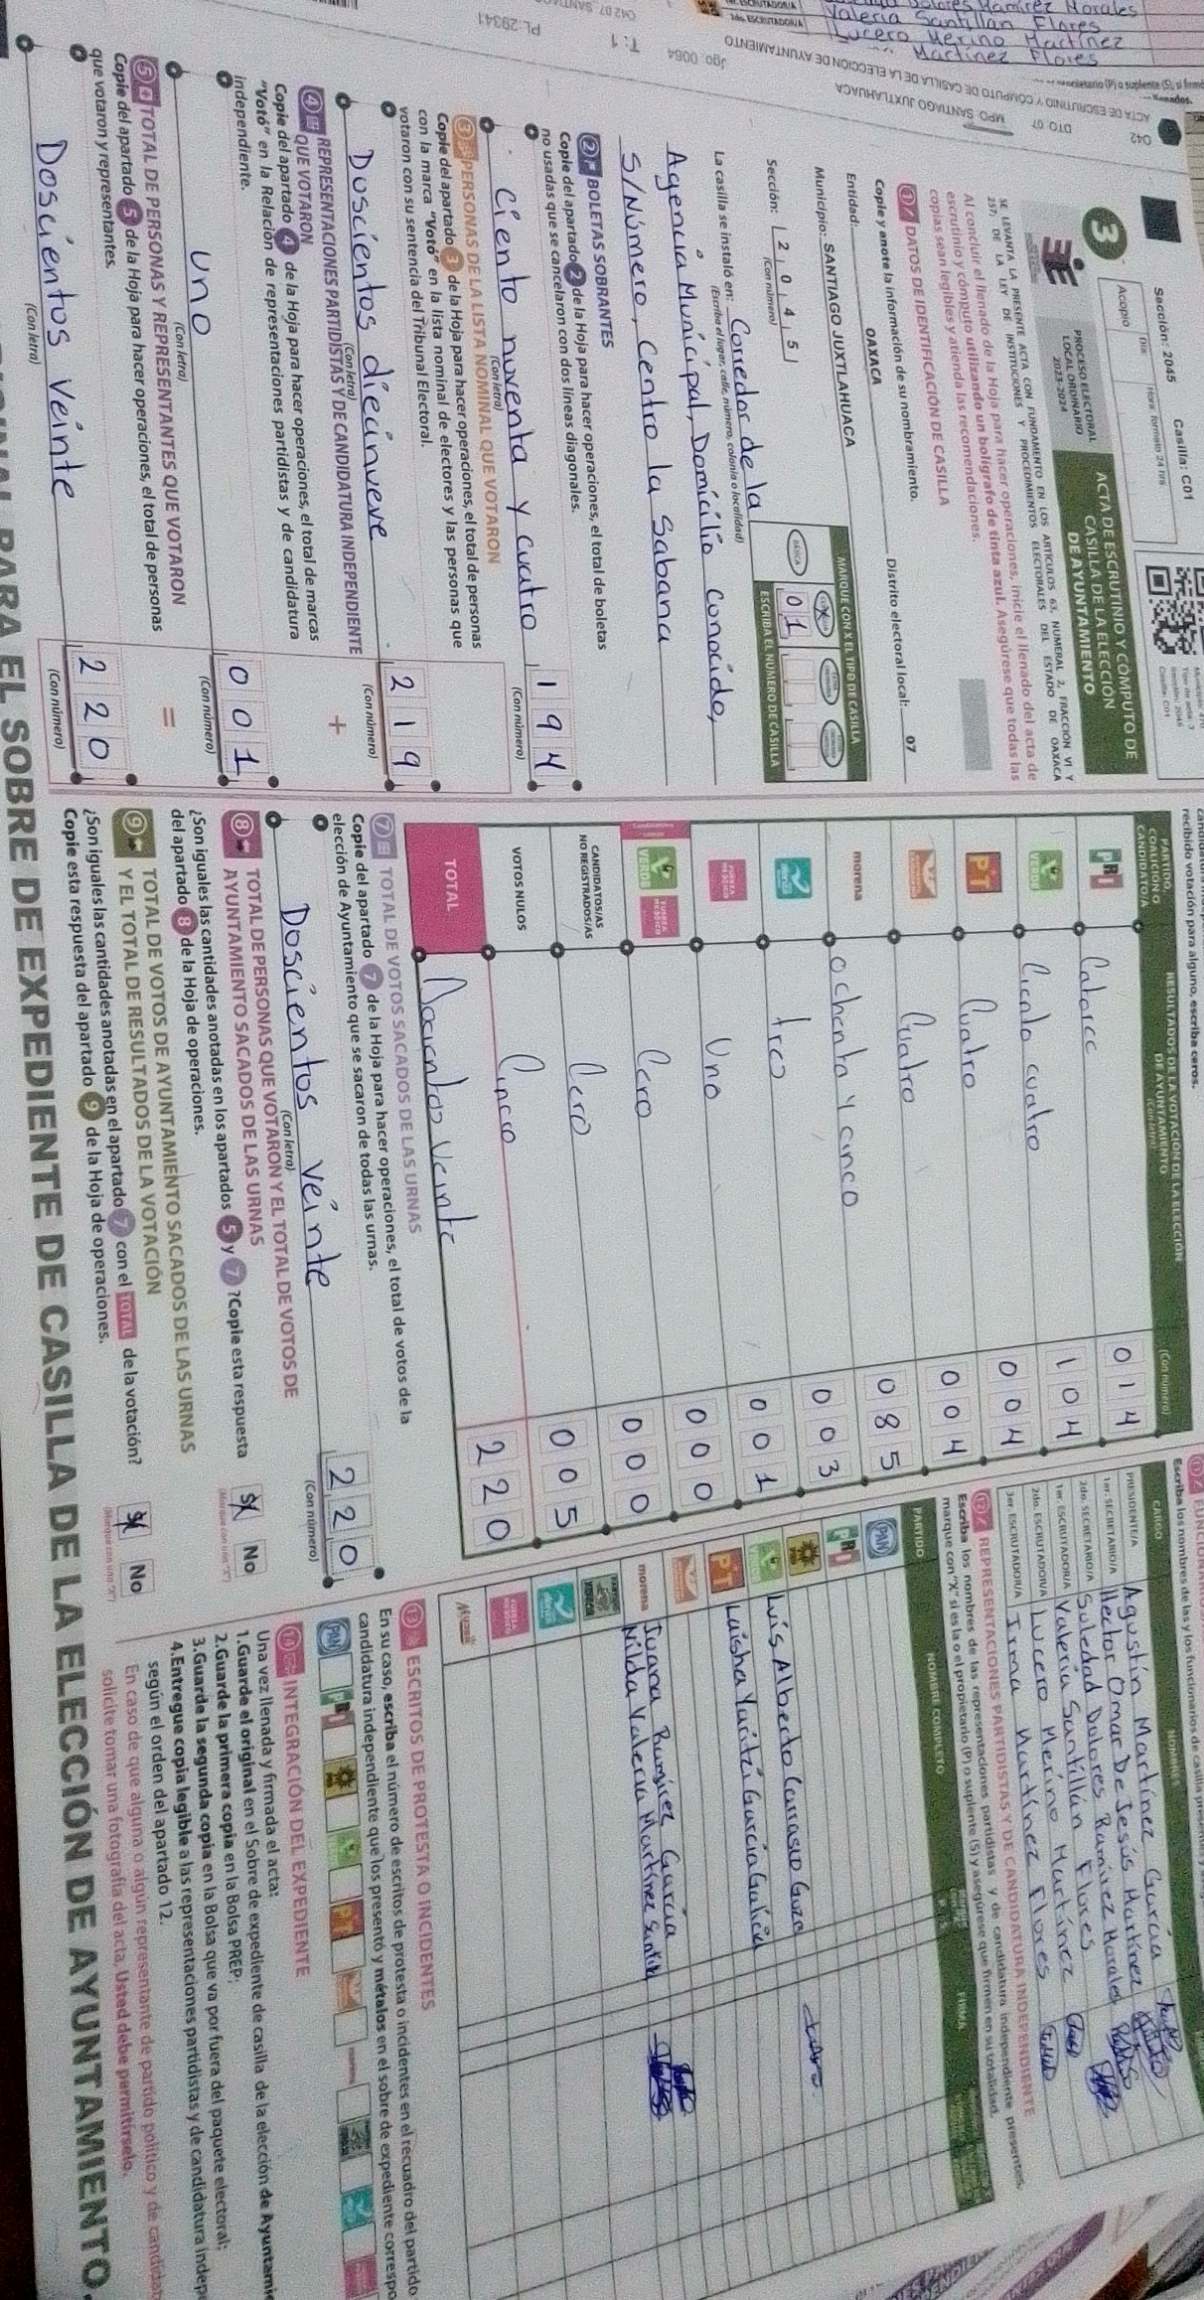 042
DTO. 07
MPO. SANTIAGO JUXTLAHUACA
ACTA DE ESCRUTINIO Y CÓMPUTO DE CASILLA DE LA ELECCIÓN DE AYUNTAMIENTO
Jgo. 0064
T: 1
PL: 29341
Valeria Santillán Flores
Lucero Merino Martínez
Martínez Flores
Sección: 2045 Casilla: C01
Acopio
Día:
Hora: formato 24 hrs
3
PROCESO ELECTORAL
LOCAL ORDINARIO
2023-2024
ACTA DE ESCRUTINIO Y CÓMPUTO DE
CASILLA DE LA ELECCIÓN
DE AYUNTAMIENTO
SE LEVANTA LA PRESENTE ACTA CON FUNDAMENTO EN LOS ARTÍCULOS 63, NUMERAL 2, FRACCIÓN VI Y
257, DE LA LEY DE INSTITUCIONES Y PROCEDIMIENTOS ELECTORALES DEL ESTADO DE OAXACA
Al concluir el llenado de la Hoja para hacer operaciones, inicie el llenado del acta de
escrutinio y cómputo utilizando un bolígrafo de tinta azul. Asegúrese que todas las
copias sean legibles y atienda las recomendaciones.
1 DATOS DE IDENTIFICACIÓN DE CASILLA
Copie y anote la información de su nombramiento.
Entidad: OAXACA Distrito electoral local: 07
Municipio: SANTIAGO JUXTLAHUACA
MARQUE CON X EL TIPO DE CASILLA
Sección: 2 0 4 5
(Con número)
ESCRIBA EL NÚMERO DE CASILLA
0 1
La casilla se instaló en: Corredor de la
(Escriba el lugar, calle, número, colonia o localidad)
Agencia Municipal, Domicilio conocido,
S/Número, Centro la Sabana
2 BOLETAS SOBRANTES
Copie del apartado 2 de la Hoja para hacer operaciones, el total de boletas
no usadas que se cancelaron con dos líneas diagonales.
Ciento noventa y cuatro 1 9 4
(Con letra) (Con número)
3 PERSONAS DE LA LISTA NOMINAL QUE VOTARON
Copie del apartado 3 de la Hoja para hacer operaciones, el total de personas
con la marca "Votó" en la lista nominal de electores y las personas que
votaron con su sentencia del Tribunal Electoral.
Doscientos diecinueve 2 1 9
(Con letra) (Con número)
4 REPRESENTACIONES PARTIDISTAS Y DE CANDIDATURA INDEPENDIENTE
QUE VOTARON +
Copie del apartado 4 de la Hoja para hacer operaciones, el total de marcas
"Votó" en la Relación de representaciones partidistas y de candidatura
independiente.
Uno 0 0 1
(Con letra) (Con número)
5 TOTAL DE PERSONAS Y REPRESENTANTES QUE VOTARON =
Copie del apartado 5 de la Hoja para hacer operaciones, el total de personas
que votaron y representantes.
Doscientos veinte 2 2 0
(Con letra) (Con número)
recibido votación para alguno, escriba ceros.
PARTIDO, COALICIÓN O CANDIDATO/A
RESULTADOS DE LA VOTACIÓN DE LA ELECCIÓN
DE AYUNTAMIENTO
(Con letra) (Con número)
PRI Catorce 0 1 4
VERDE Ciento cuatro 1 0 4
PT Cuatro 0 0 4
Cuatro 0 0 4
morena Ochenta y cinco 0 8 5
Tres 0 0 3
FUERZA MÉXICO Uno 0 0 1
VERDE FUERZA MÉXICO Cero 0 0 0
CANDIDATOS/AS
NO REGISTRADOS/AS Cero 0 0 0
VOTOS NULOS Cinco 0 0 5
TOTAL Doscientos Veinte 2 2 0
7 TOTAL DE VOTOS SACADOS DE LAS URNAS
Copie del apartado 7 de la Hoja para hacer operaciones, el total de votos de la
elección de Ayuntamiento que se sacaron de todas las urnas.
Doscientos veinte 2 2 0
(Con letra) (Con número)
8 TOTAL DE PERSONAS QUE VOTARON Y EL TOTAL DE VOTOS DE
AYUNTAMIENTO SACADOS DE LAS URNAS
¿Son iguales las cantidades anotadas en los apartados 5 y 7 ? Copie esta respuesta
del apartado 8 de la Hoja de operaciones.
Sí No
9 TOTAL DE VOTOS DE AYUNTAMIENTO SACADOS DE LAS URNAS
Y EL TOTAL DE RESULTADOS DE LA VOTACIÓN
¿Son iguales las cantidades anotadas en el apartado 7 con el TOTAL de la votación?
Copie esta respuesta del apartado 9 de la Hoja de operaciones.
Sí No
Escriba los nombres de las y los funcionarios de casilla
CARGO NOMBRE
PRESIDENTE/A Agustín Martínez García
1er. SECRETARIO/A Hector Omar De Jesús Martínez
2do. SECRETARIO/A Soledad Dolores Ramírez Morales
1er. ESCRUTADOR/A Valeria Santillán Flores
2do. ESCRUTADOR/A Lucero Merino Martínez
3er. ESCRUTADOR/A Irma Martínez Flores
12 REPRESENTACIONES PARTIDISTAS Y DE CANDIDATURA INDEPENDIENTE
Escriba los nombres de las representaciones partidistas y de candidatura independiente presentes,
marque con "X" si es la o el propietario (P) o suplente (S) y asegúrese que firmen en su totalidad.
PARTIDO NOMBRE COMPLETO FIRMA
PAN
PRI
Luis Alberto Carrasco Guzo
Laisha Yaritzi García Galicia
PT
morena Juana Ramírez García
Nilda Valeria Martínez Santill
13 ESCRITOS DE PROTESTA O INCIDENTES
En su caso, escriba el número de escritos de protesta o incidentes en el recuadro del partido
candidatura independiente que los presentó y métalos en el sobre de expediente correspo
PAN PRI PT
14 INTEGRACIÓN DEL EXPEDIENTE
Una vez llenada y firmada el acta:
1.Guarde el original en el Sobre de expediente de casilla de la elección de Ayuntami
2.Guarde la primera copia en la Bolsa PREP;
3.Guarde la segunda copia en la Bolsa que va por fuera del paquete electoral;
4.Entregue copia legible a las representaciones partidistas y de candidatura indep
según el orden del apartado 12.
En caso de que alguna o algún representante de partido político y de candidat
solicite tomar una fotografía del acta, Usted debe permitírselo.
PARA EL SOBRE DE EXPEDIENTE DE CASILLA DE LA ELECCIÓN DE AYUNTAMIENTO.